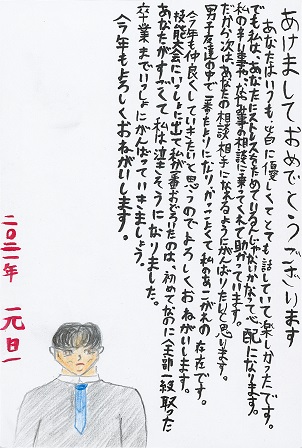 あけましておめでとうございます
あなたはいつも面白に優しくてとても話していて楽しかったです。
でも私は、あなたにストレスをためているんじゃないかなって心配になります。
私のまり事や、なやみ事の相談に乗ってくれて助かっています。
だから次は、あなたの相談相手になれるようにがんばりたいと思います。
男子友達の中で一番たよりになり、かっこよくて私のあこがれの存在です。
今年も仲良くしていきたいと思うのでよろしくおねがいします。
技能大会にいっしょに出て私が一番おどろいたのは、初めてなのに全部一級取った
あなたがすごくて私は泣きそうになりました。
卒業までいっしょにがんばっていきましょう。
今年もよろしくおねがいします。
二〇二一年 元日